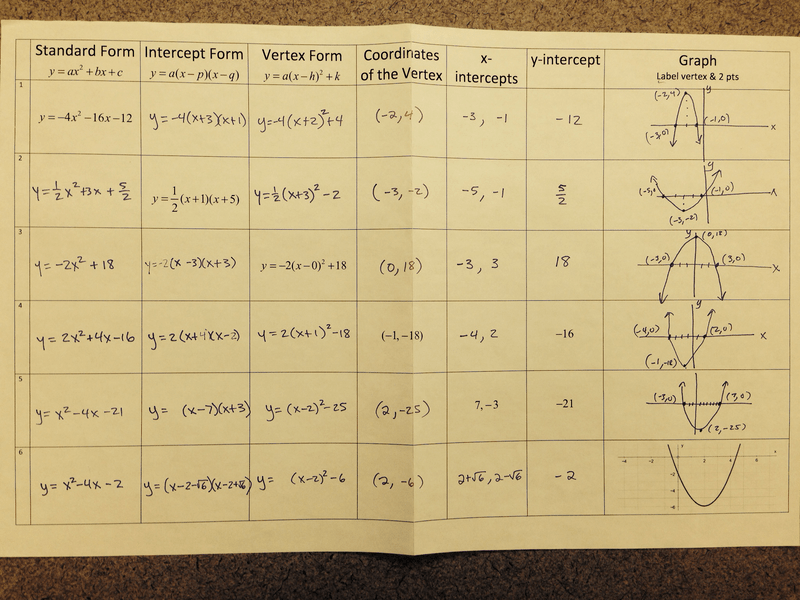 Standard Form Intercept Form Vertex Form Coordinates of the Vertex x-intercepts y-intercept Graph
y = ax² + bx + c y = a(x − p)(x − q) y = a(x − h)² + k Label vertex & 2 pts
1 y = −4x² − 16x − 12 y = −4(x+3)(x+1) y = −4(x+2)² + 4 (−2, 4) −3, −1 −12 (−2, 4) (−1, 0) (−3, 0) y x
2 y = 1/2 x² + 3x + 5/2 y = 1/2 (x + 1)(x + 5) y = 1/2 (x+3)² − 2 (−3, −2) −5, −1 5/2 (−5, 0 (−1, 0) (−3, −2) y
3 y = −2x² + 18 y = −2(x − 3)(x + 3) y = −2(x − 0)² + 18 (0, 18) −3, 3 18 y (0, 18) (−3, 0) (3, 0) x
4 y = 2x² + 4x − 16 y = 2(x+4)(x−2) y = 2(x+1)² − 18 (−1, −18) −4, 2 −16 y (−4, 0) (2, 0) x (−1, −18)
5 y = x² − 4x − 21 y = (x−7)(x+3) y = (x−2)² − 25 (2, −25) 7, −3 −21 (−3, 0) (7, 0) (2, −25)
6 y = x² − 4x − 2 y = (x−2−√6)(x−2+√6) y = (x−2)² − 6 (2, −6) 2+√6, 2−√6 −2